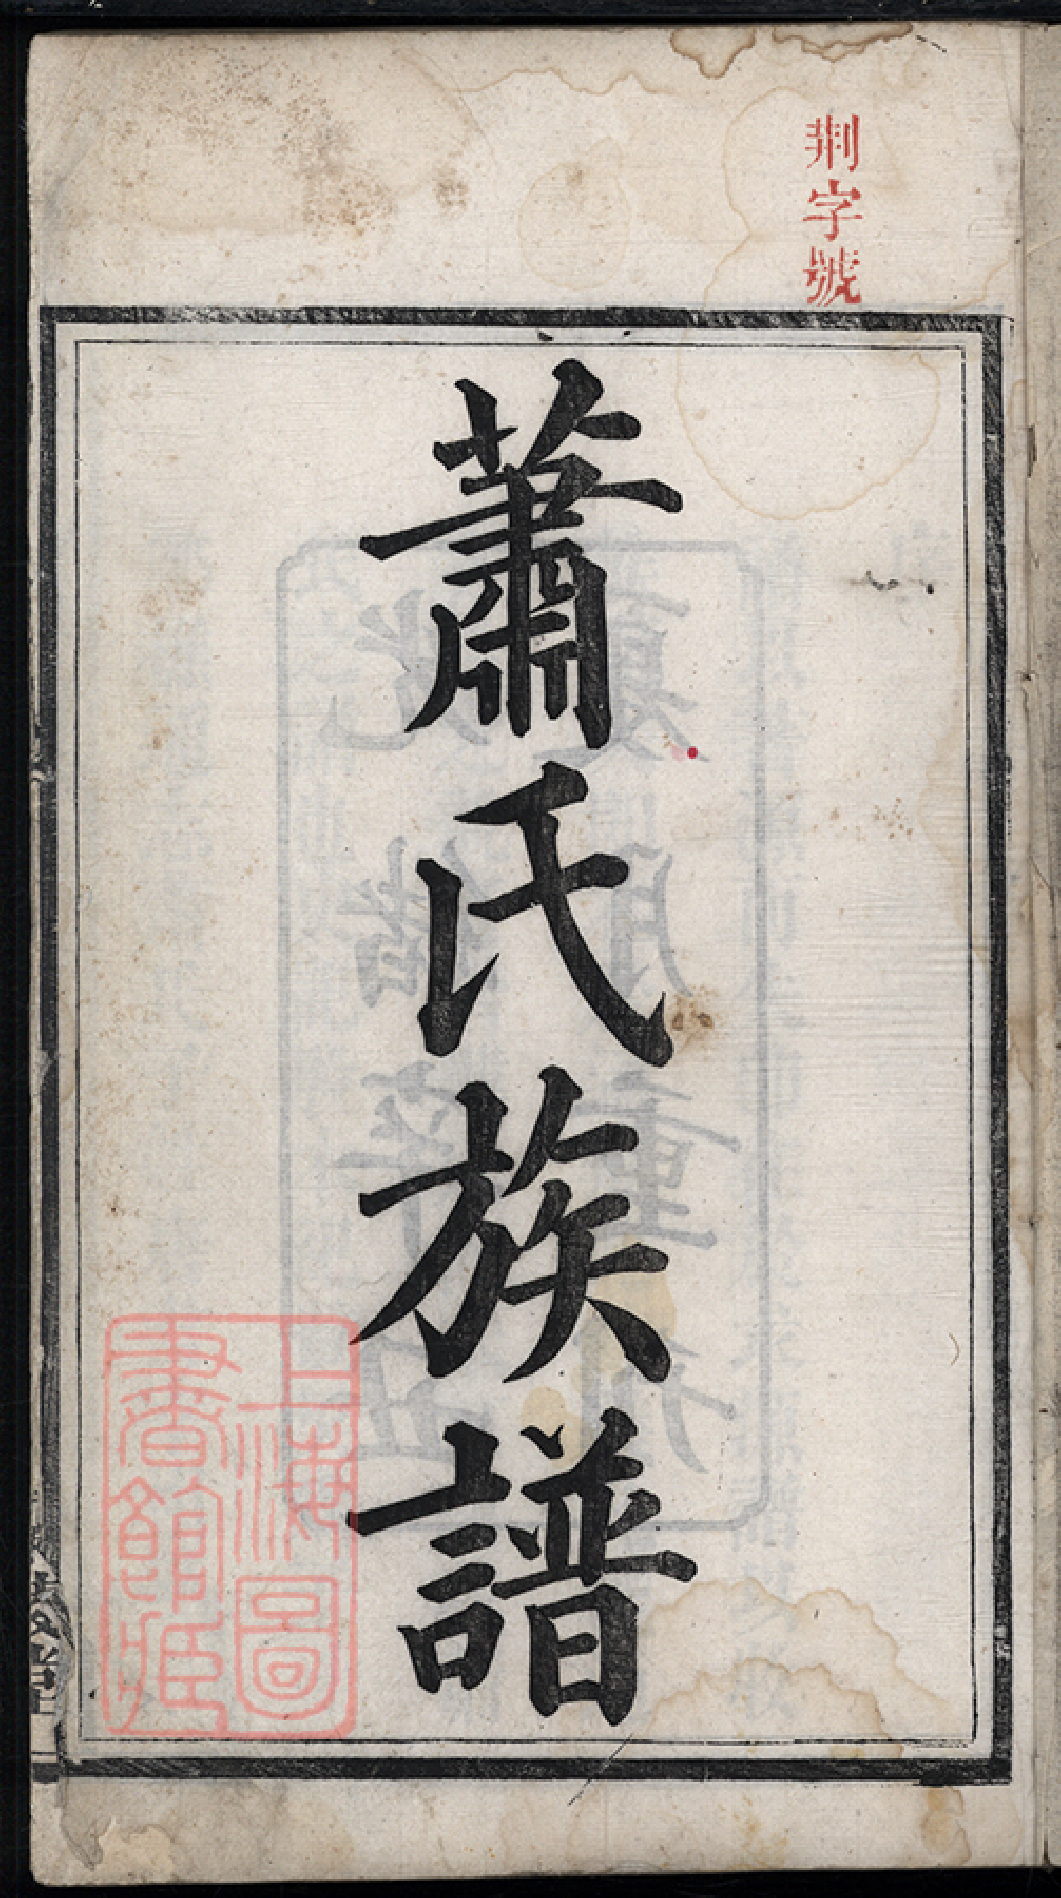 荆字號
蕭氏族譜
上海圖
書館藏